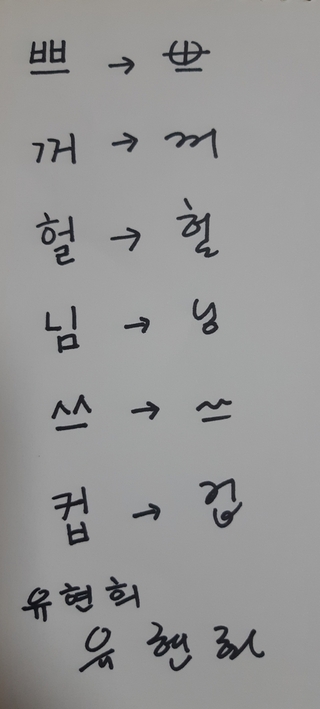 쁘 → 쁘
꺼 → 꺼
헐 → 헐
님 → 님
쓰 → 쓰
컵 → 컵
유현희
유현희